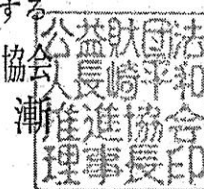 する
協会
漸
公益財団法
人長崎平和
推進協会
理事長印